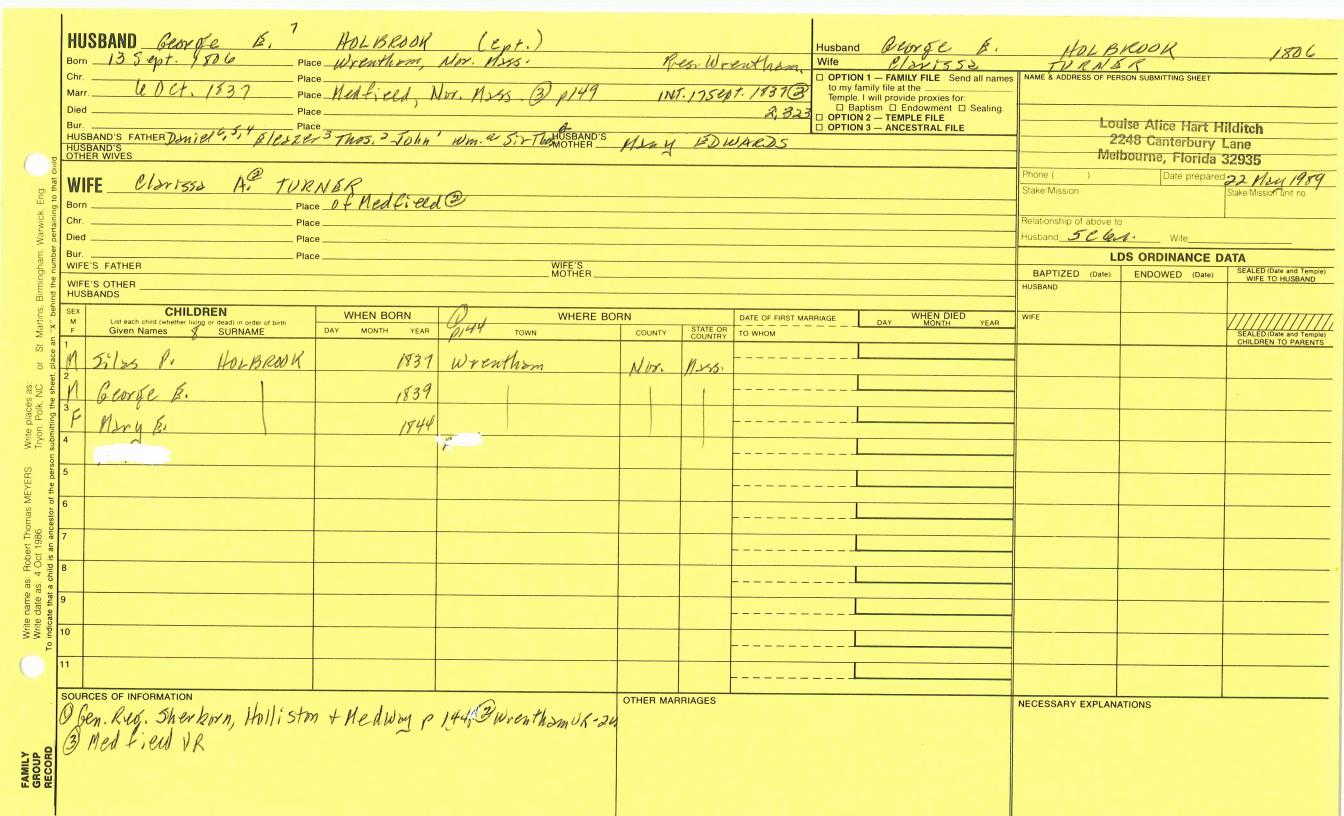 HUSBAND George E. 7 HOLBROOK (cpt.)
Born 13 Sept. 1806 Place Wrentham, Nor. Mass. Res. Wrentham,
Chr. Place
Marr. 6 Oct. 1837 Place Medfield, Nor. Mass ③ p149 INT. 17 Sept. 1837 ③
Died Place 2,323
Bur. Place
HUSBAND'S FATHER Daniel 6, 5, 4 Eleazer 3 Thos. 2 John 1 Wm. a Sir Thos HUSBAND'S MOTHER Mary EDWARDS
HUSBAND'S OTHER WIVES
WIFE Clarissa A. ② TURNER
Born Place of Medfield ②
Chr. Place
Died Place
Bur. Place
WIFE'S FATHER WIFE'S MOTHER
WIFE'S OTHER HUSBANDS
Husband George E. HOLBROOK 1806
Wife Clarissa TURNER
☐ OPTION 1 — FAMILY FILE Send all names
to my family file at the
Temple. I will provide proxies for:
☐ Baptism ☐ Endowment ☐ Sealing.
☐ OPTION 2 — TEMPLE FILE
☐ OPTION 3 — ANCESTRAL FILE
NAME & ADDRESS OF PERSON SUBMITTING SHEET
Louise Alice Hart Hilditch
2248 Canterbury Lane
Melbourne, Florida 32935
Phone ( ) Date prepared 22 May 1989
Stake Mission Stake Mission unit no.
Relationship of above to
Husband 5C6x1. Wife
LDS ORDINANCE DATA
BAPTIZED (Date) ENDOWED (Date) SEALED (Date and Temple) WIFE TO HUSBAND
HUSBAND
WIFE
SEALED (Date and Temple) CHILDREN TO PARENTS
SEX M F
CHILDREN
List each child (whether living or dead) in order of birth
Given Names 8 SURNAME
WHEN BORN
DAY MONTH YEAR
① p144
WHERE BORN
TOWN COUNTY STATE OR COUNTRY
DATE OF FIRST MARRIAGE
TO WHOM
WHEN DIED
DAY MONTH YEAR
1 M Silas P. HOLBROOK 1837 Wrentham Nor. Mass.
2 M George E. 1839
3 F Mary E. 1844
4
5
6
7
8
9
10
11
SOURCES OF INFORMATION
① Gen. Reg. Sherborn, Holliston + Medway p 144, ② Wrentham VR-2
③ Medfield VR
OTHER MARRIAGES
NECESSARY EXPLANATIONS
Write name as: Robert Thomas MEYERS Write places as: Tryon, Polk, NC or St. Martins, Birmingham, Warwick, Eng
Write date as: 4 Oct 1986
To indicate that a child is an ancestor of the person submitting the sheet, place an "X" behind the number pertaining to that child
FAMILY
GROUP
RECORD